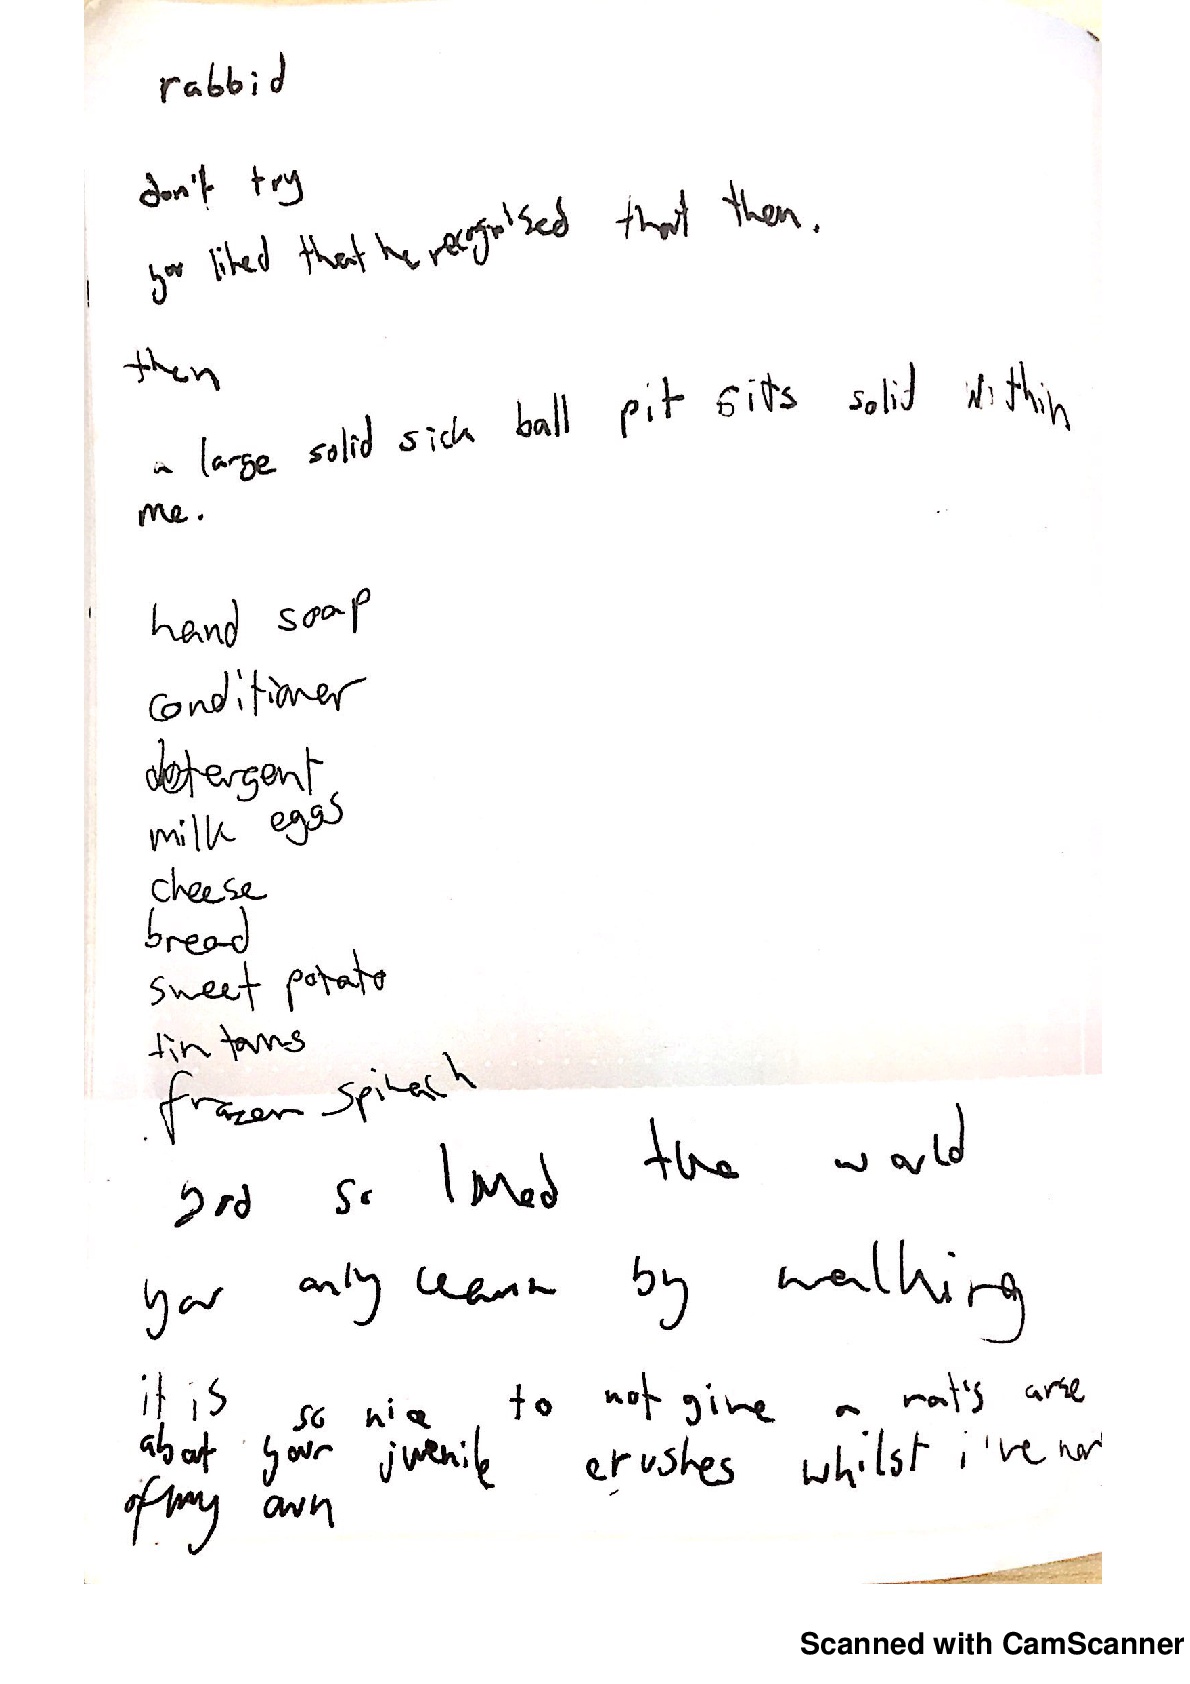 rabbid
don't try
you liked that he recognised that then.
then
a large solid sick ball pit sits solid within
me.
hand soap
conditioner
detergent
milk eggs
cheese
bread
sweet potato
tin tams
frozen spinach
god so loved the world
you only learn by walking
it is so nice to not give a rat's arse
about your juvenile crushes whilst i've
of my own
Scanned with CamScanner